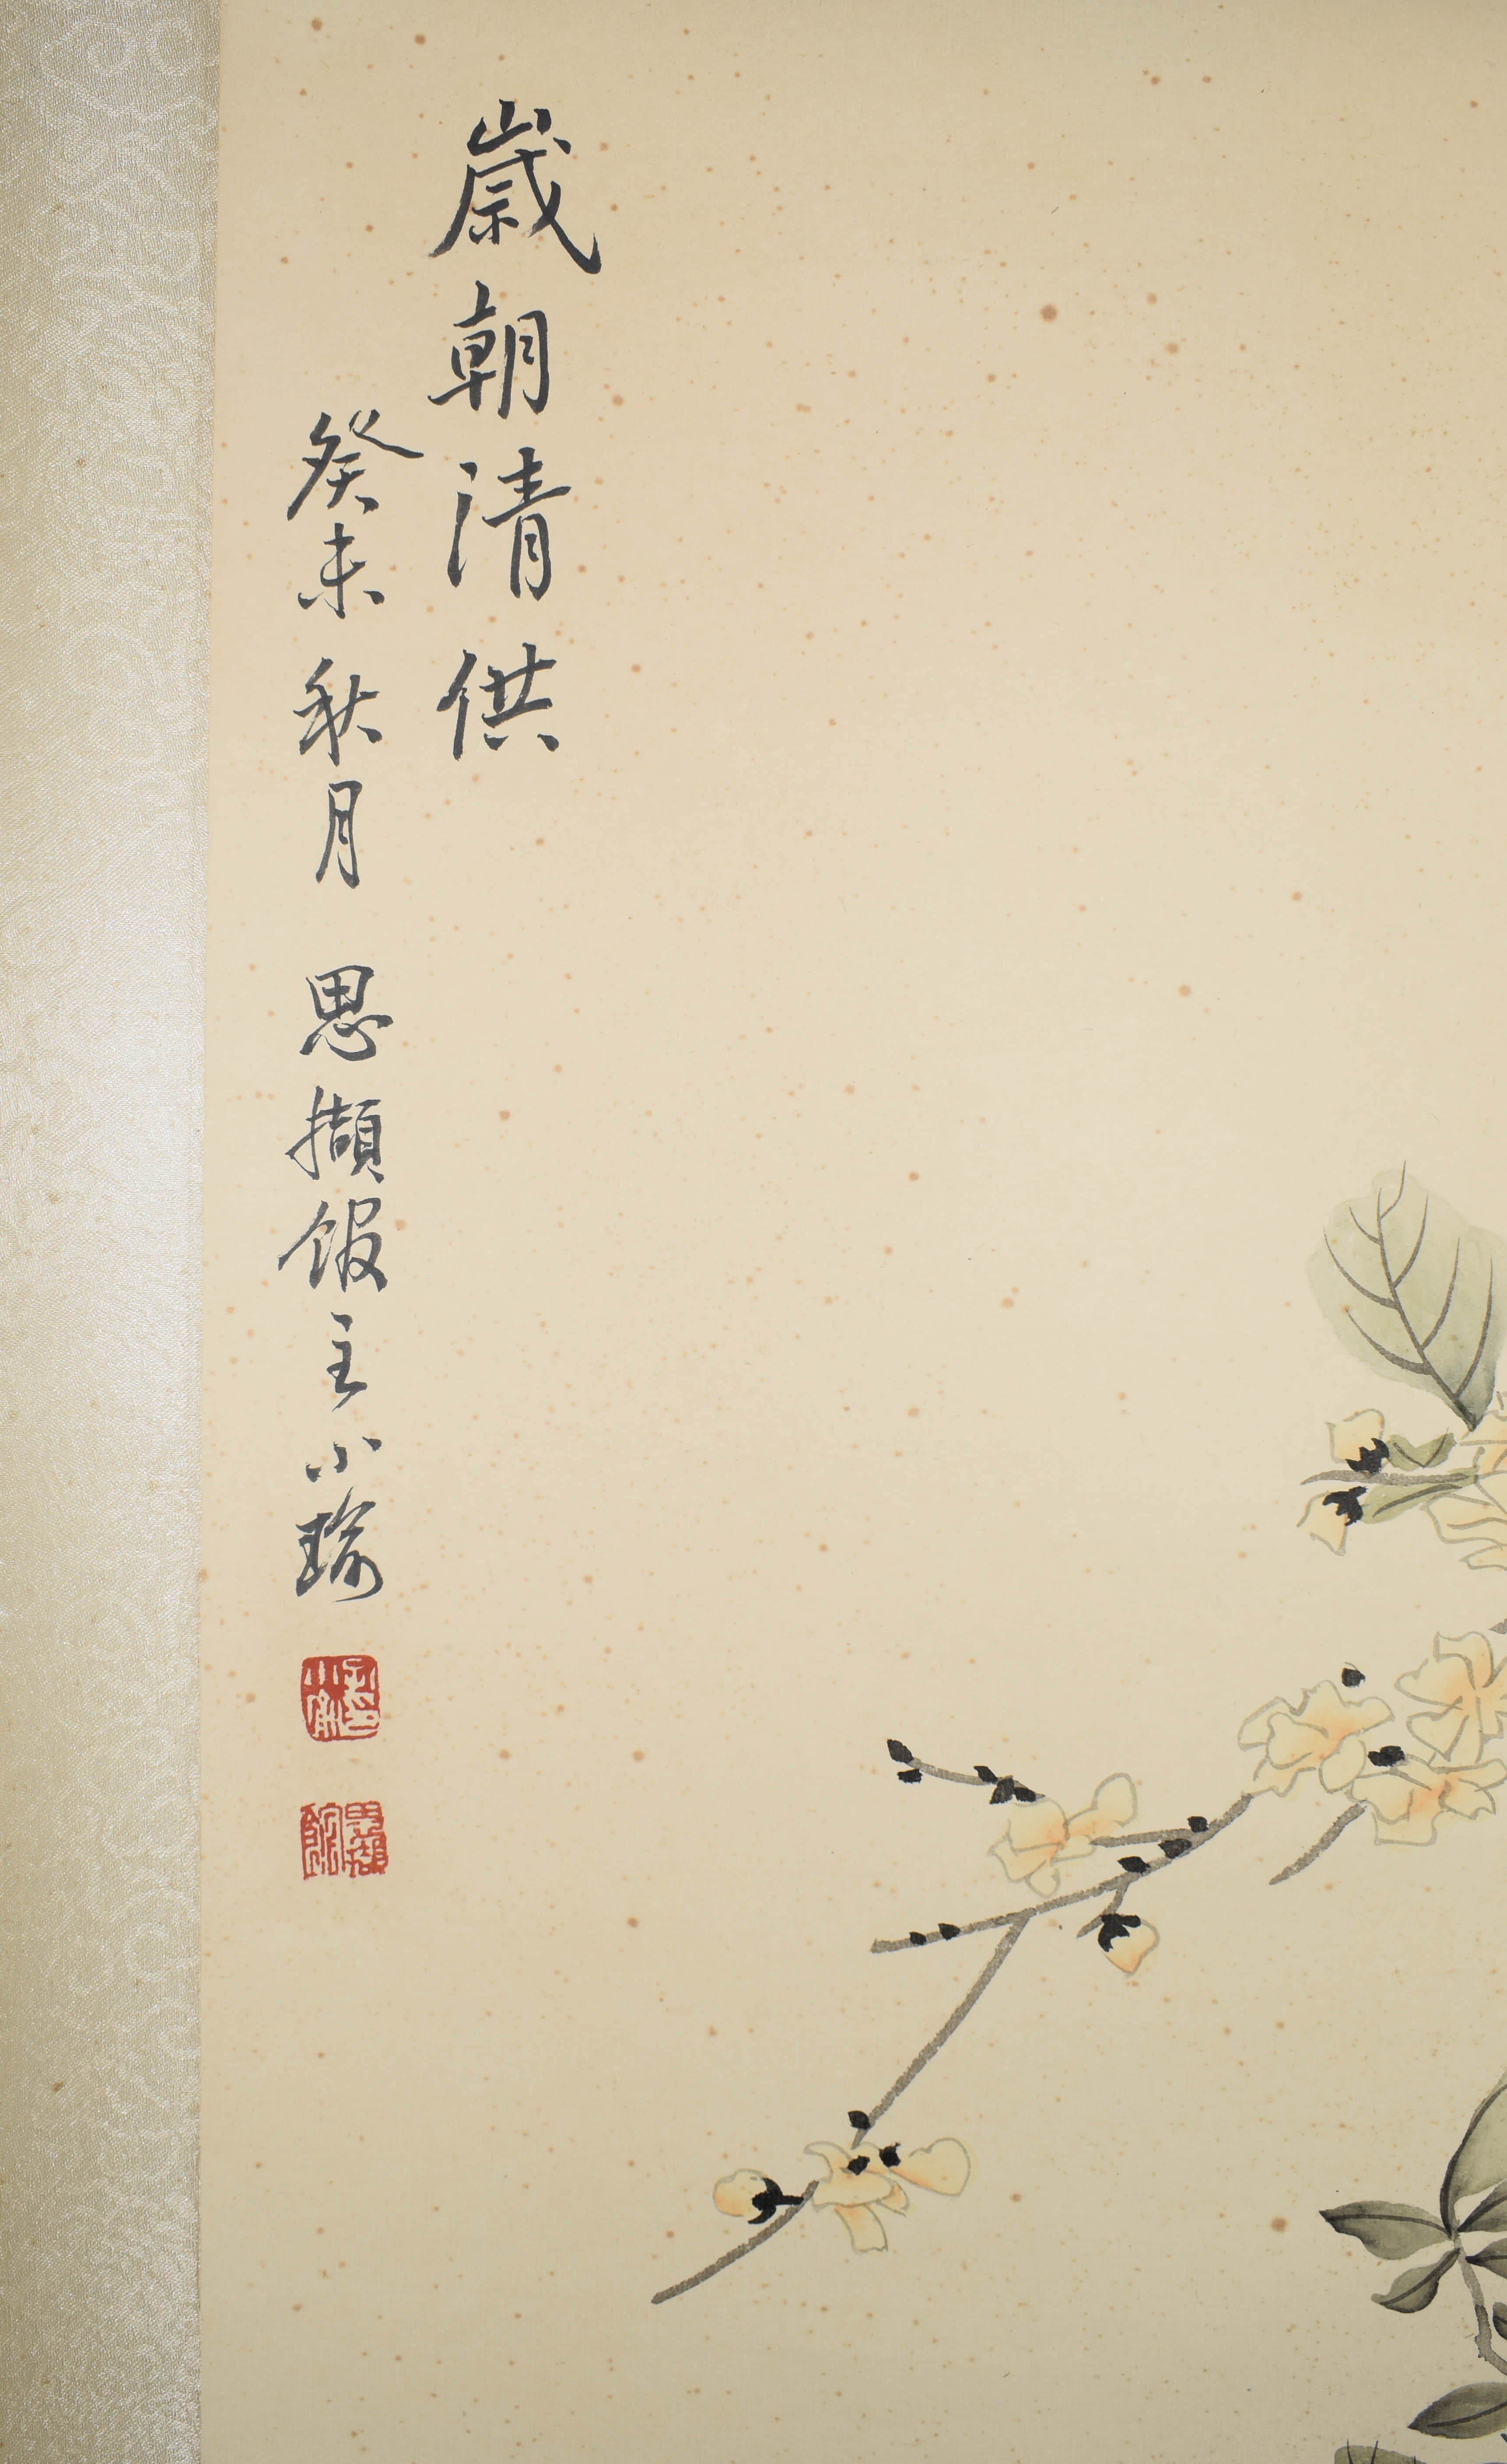 歲朝清供
癸未秋月 思擷館主小瑜